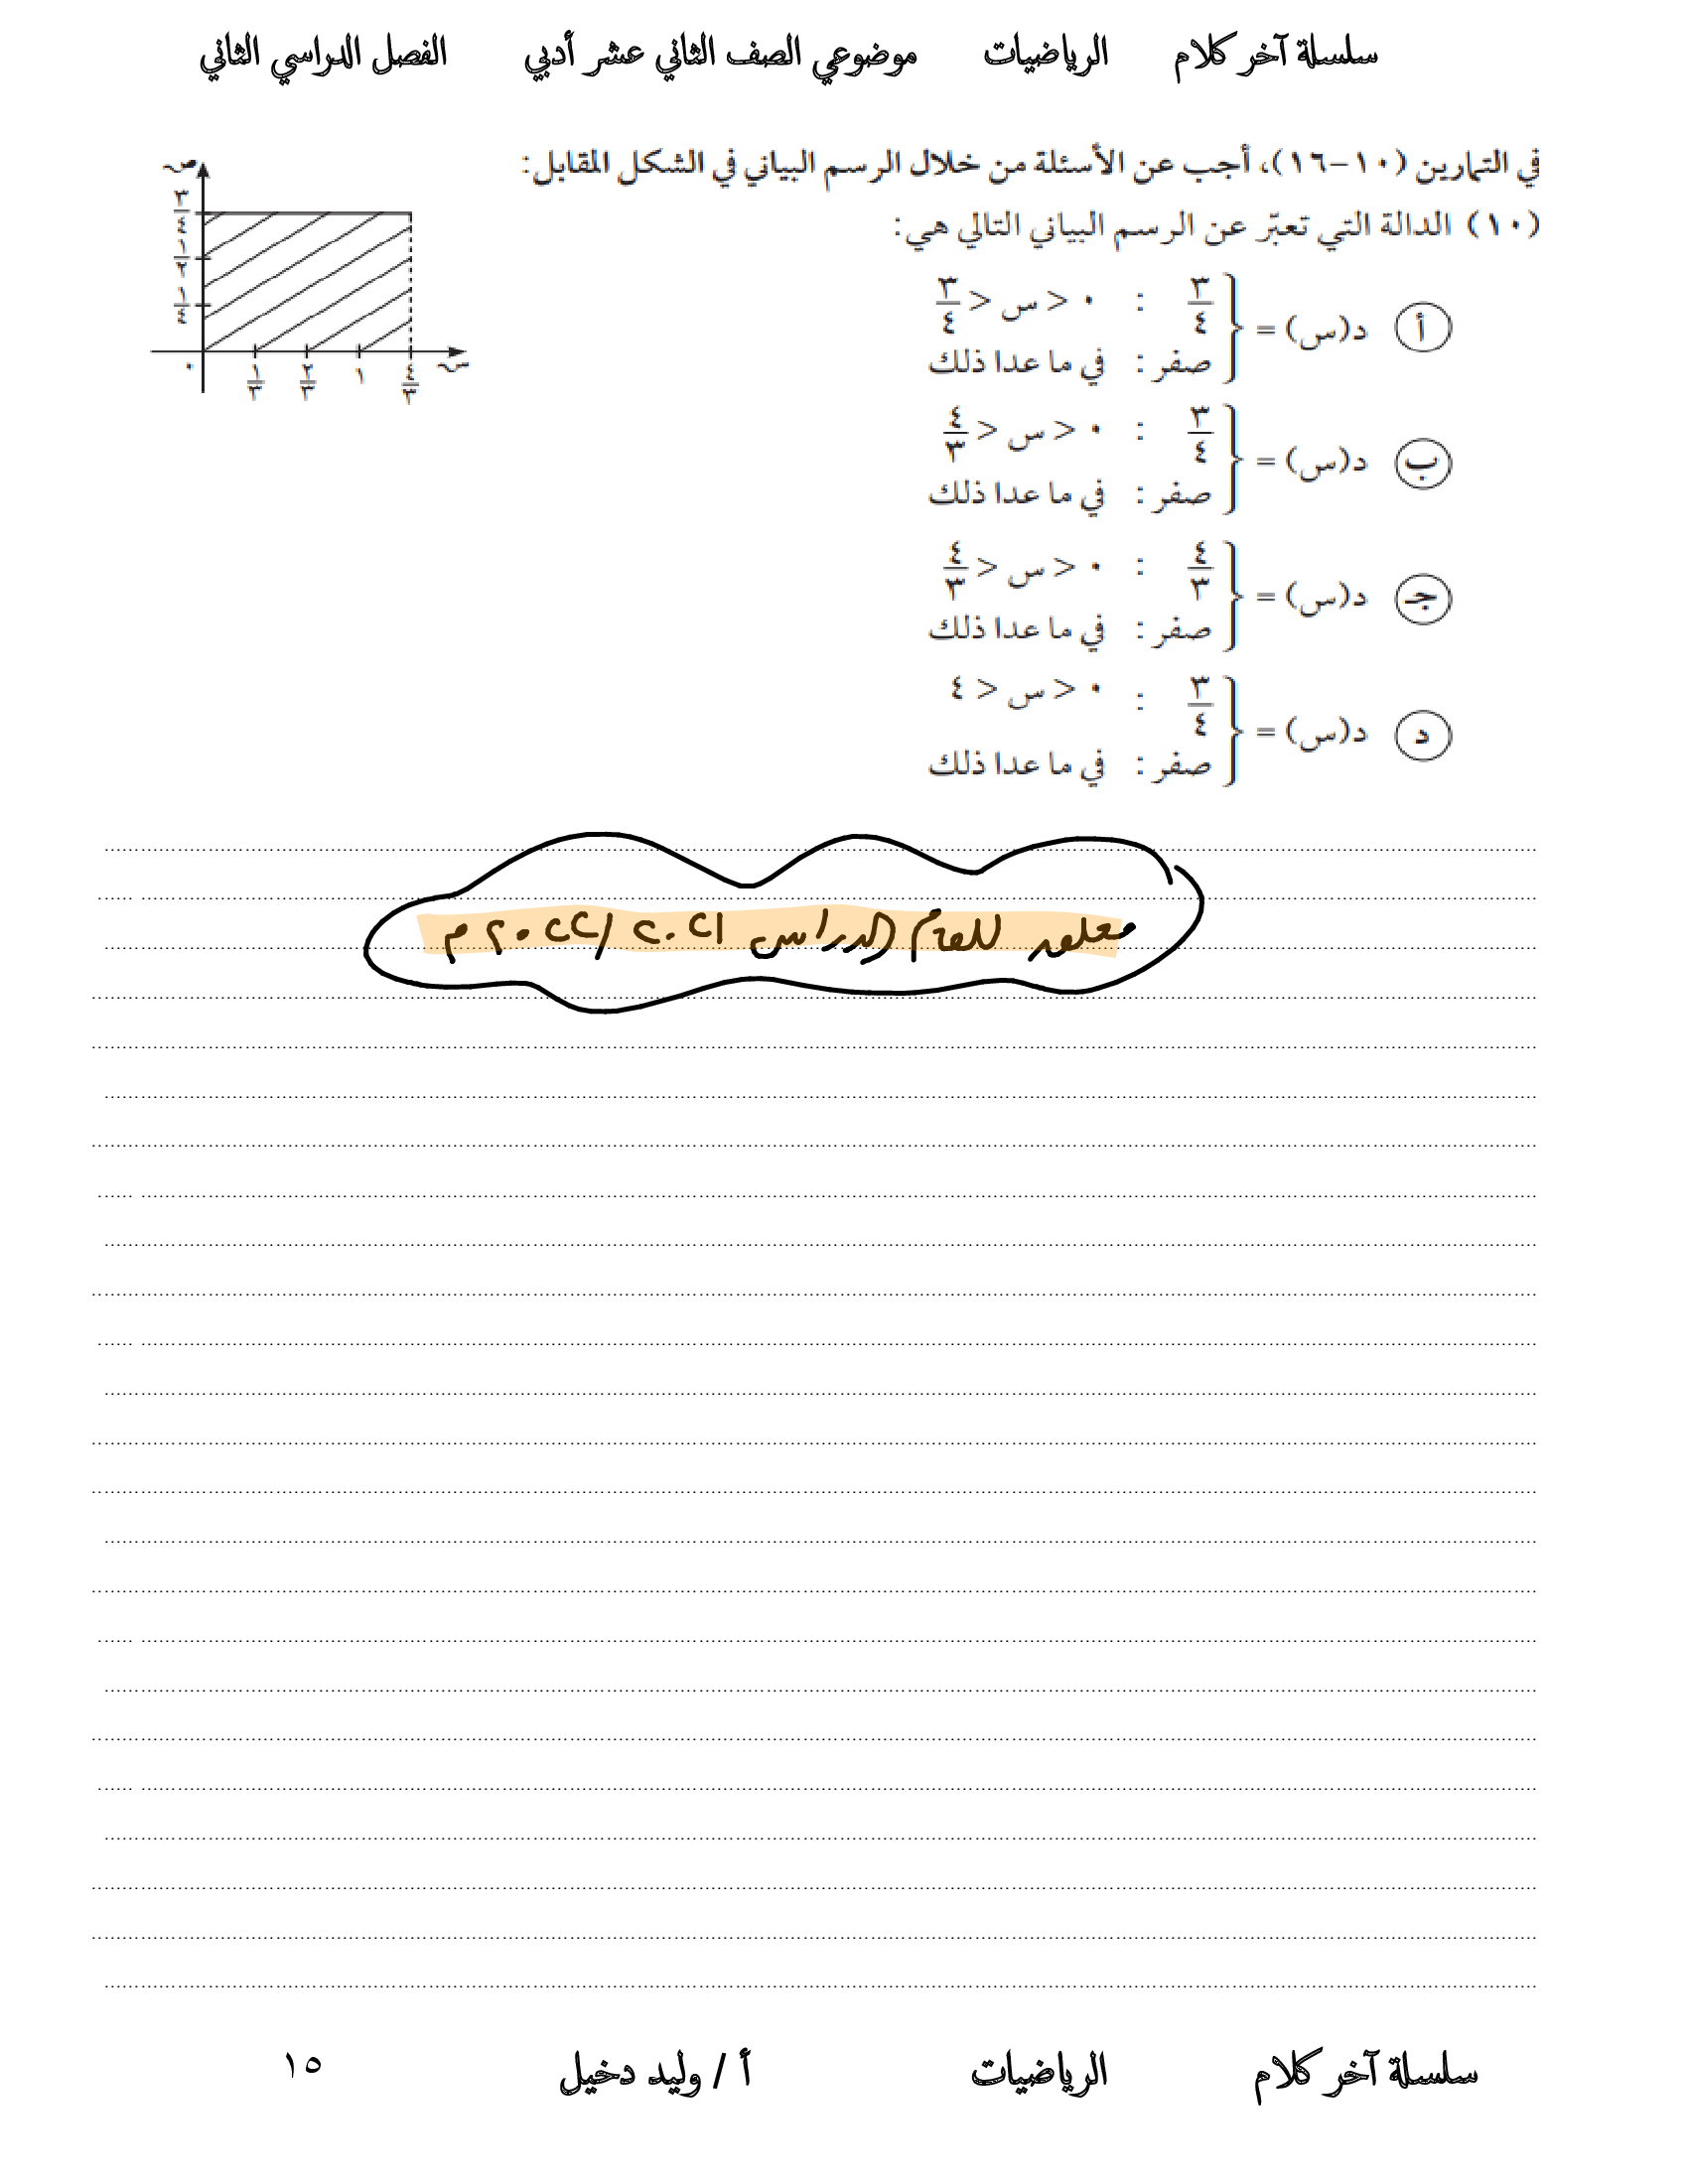 سلسلة آخر كلام الرياضيات موضوعي الصف الثاني عشر أدبي الفصل الدراسي الثاني
في التمارين (١٠-١٦)، أجب عن الأسئلة من خلال الرسم البياني في الشكل المقابل:
(١٠) الدالة التي تعبّر عن الرسم البياني التالي هي:
ص
٣/٤
١/٢
١/٤
٠ ١/٣ ٢/٣ ١ ٤/٣ س
أ د(س) = { ٣/٤ : ٠ < س < ٣/٤
صفر : في ما عدا ذلك
ب د(س) = { ٣/٤ : ٠ < س < ٤/٣
صفر : في ما عدا ذلك
جـ د(س) = { ٤/٣ : ٠ < س < ٤/٣
صفر : في ما عدا ذلك
د د(س) = { ٣/٤ : ٠ < س < ٤
صفر : في ما عدا ذلك
معلق للعام الدراسي ٢٠٢١ / ٢٠٢٢ م
سلسلة آخر كلام الرياضيات أ / وليد دخيل ١٥